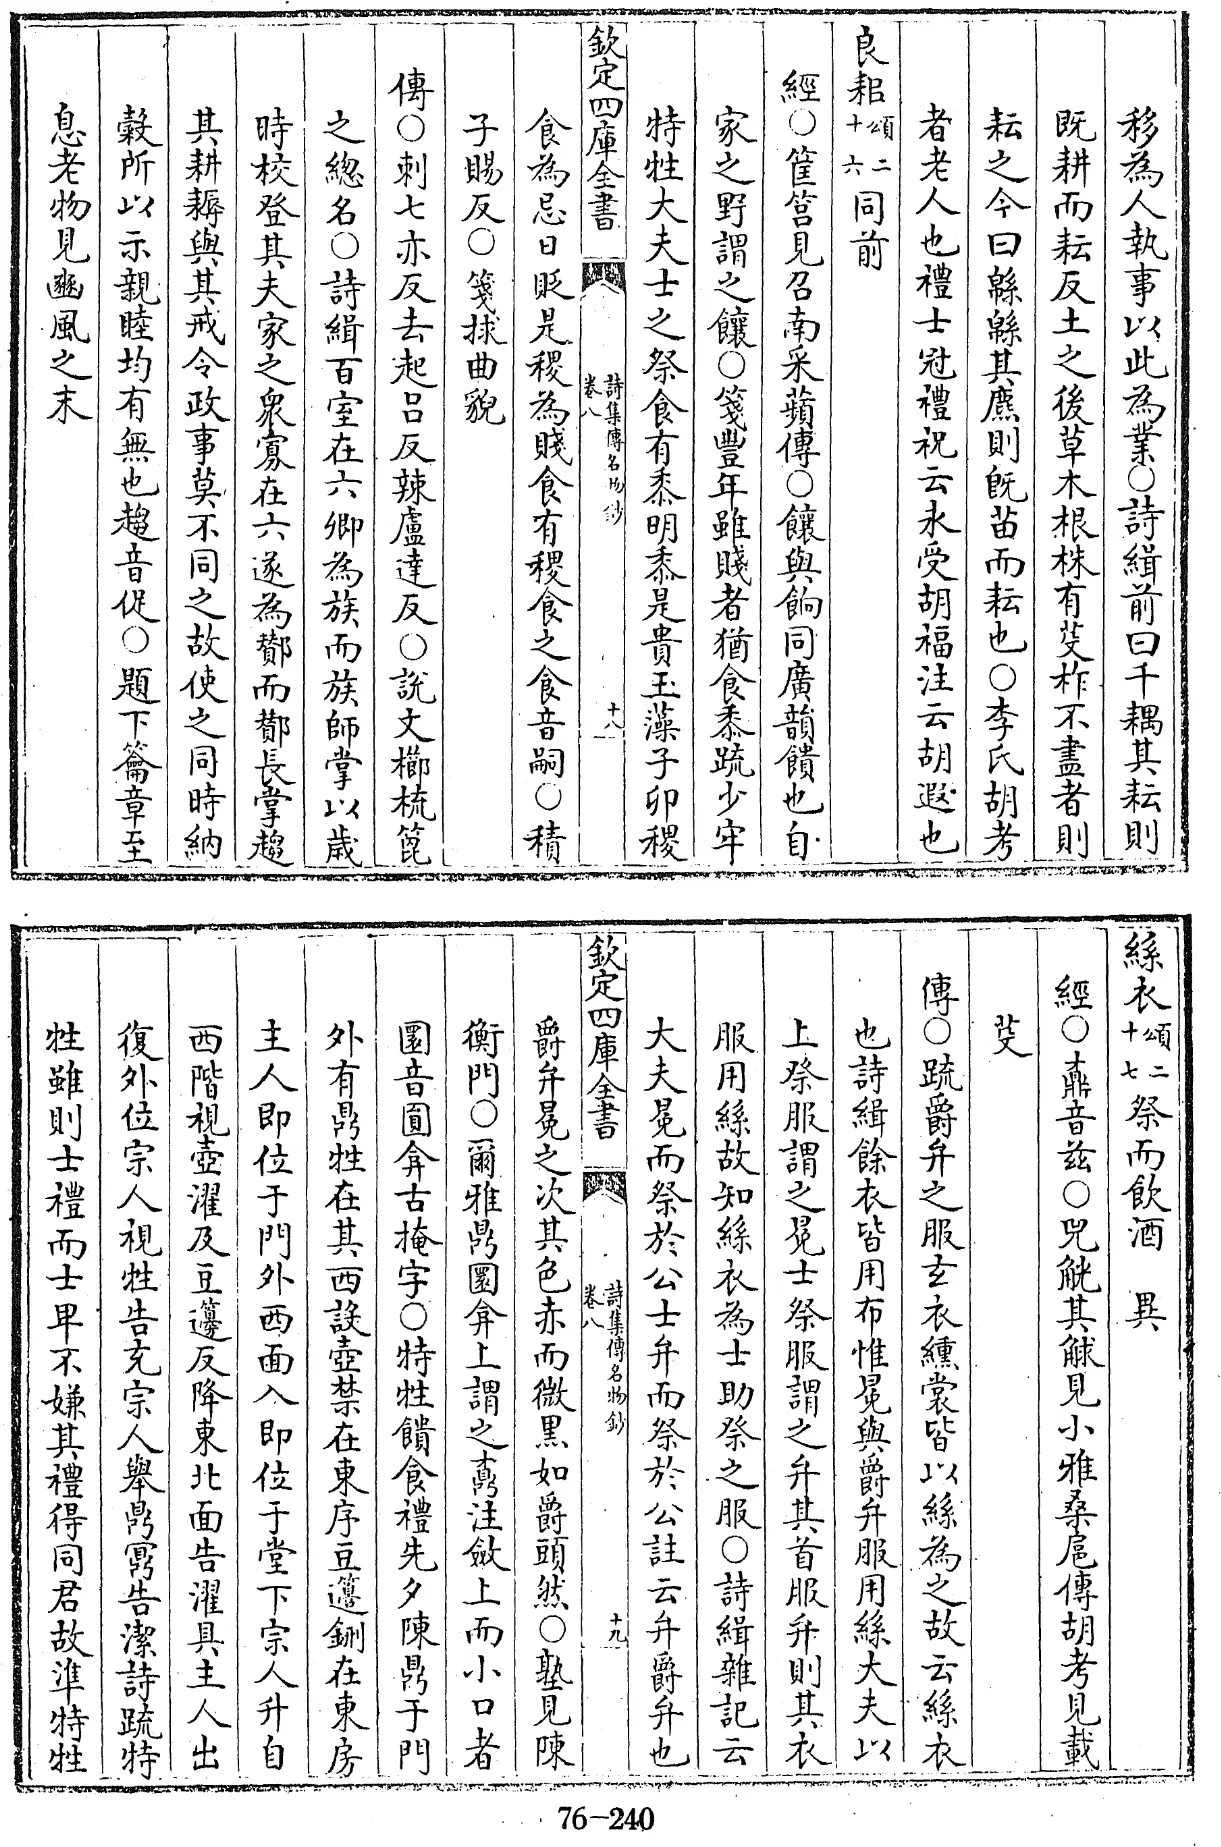 移為人執事以此為業○詩緝前曰千耦其耘則
既耕而耘反土之後草木根株有芟柞不盡者則
耘之今曰緜緜其麃則既苗而耘也○李氏胡考
者老人也禮士冠禮祝云永受胡福注云胡遐也
良耜頌二十六同前
經○筐筥見召南采蘋傳○饟與餉同廣韻饋也自
家之野謂之饟○箋豐年雖賤者猶食黍疏少牢
特牲大夫士之祭食有黍明黍是貴玉藻子卯稷
欽定四庫全書 詩集傳名物鈔 卷八 十八
食為忌日貶是稷為賤食有稷食之食音嗣○積
子賜反○箋捄曲貌
傳○刺七亦反去起呂反辣盧達反○說文櫛梳箆
之總名○詩緝百室在六鄉為族而族師掌以歲
時校登其夫家之衆寡在六遂為酇而酇長掌趨
其耕耨與其戒令政事莫不同之故使之同時納
糓所以示親睦均有無也趨音促○題下籥章至
息老物見豳風之末
絲衣頌二十七祭而飲酒 異
經○鼒音茲○兕觥其觩見小雅桑扈傳胡考見載
芟
傳○疏爵弁之服玄衣纁裳皆以絲為之故云絲衣
也詩緝餘衣皆用布惟冕與爵弁服用絲大夫以
上祭服謂之冕士祭服謂之弁其首服弁則其衣
服用絲故知絲衣為士助祭之服○詩緝雜記云
大夫冕而祭於公士弁而祭於公註云弁爵弁也
欽定四庫全書 詩集傳名物鈔 卷八 十九
爵弁冕之次其色赤而微黒如爵頭然○塾見陳
衡門○爾雅鼎圜弇上謂之鼒注斂上而小口者
圜音圓弇古掩字○特牲饋食禮先夕陳鼎于門
外有鼎牲在其西設壺禁在東序豆籩鉶在東房
主人即位于門外西面入即位于堂下宗人升自
西階視壺濯及豆籩反降東北面告濯具主人出
復外位宗人視牲告充宗人舉鼎鼏告潔詩疏特
牲雖則士禮而士卑不嫌其禮得同君故準特牲
76-240